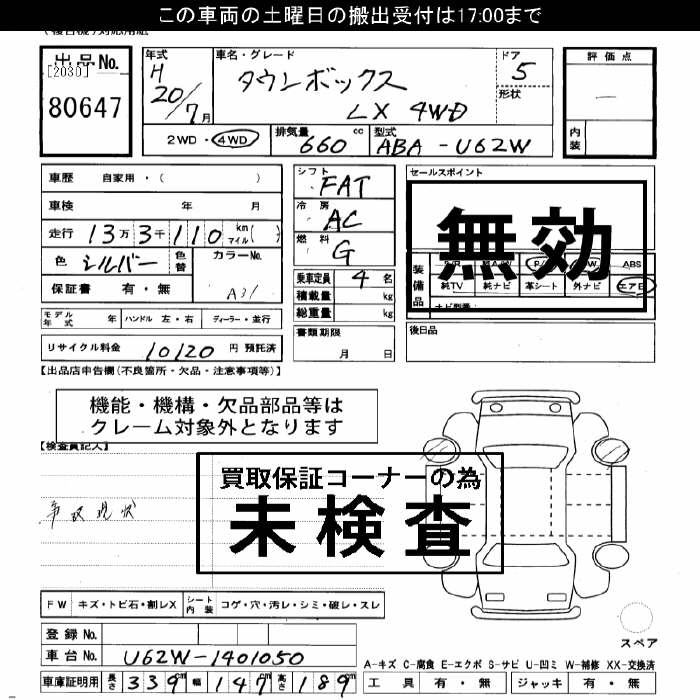 この車両の土曜日の搬出受付は17:00まで
出品No. [2030] 80647
年式 H 20/7月
車名・グレード タウンボックス LX 4WD
ドア 5 形状
評価点 — 内装
2WD・4WD
排気量 660 cc
型式 ABA-U62W
車歴 自家用・( )
車検 年 月
走行 13万3千110 km マイル( )
色 シルバー 色替 カラーNo. A31
保証書 有・無
シフト FAT
冷房 AC
燃料 G
乗車定員 4名
積載量 kg
総重量 kg
セールスポイント
無効
装備品 ABS
純TV 純ナビ 革シート 外ナビ エアB
モデル年式 年 ハンドル 左・右 ディーラー・並行
書類期限 月 日
後日品
リサイクル料金 10120 円 預託済
【出品店申告欄(不良箇所・欠品・注意事項等)】
機能・機構・欠品部品等は
クレーム対象外となります
【検査員記入】
買取保証コーナーの為
未検査
事故現状
FW キズ・トビ石・割レX シート内装 コゲ・穴・汚レ・シミ・破レ・スレ
登録No.
スペア
車台No. U62W-1401050
A-キズ C-腐食 E-エクボ S-サビ U-凹ミ W-補修 XX-交換済
車庫証明用 長さ 339cm 幅 147cm 高さ 189cm
工具 有・無 ジャッキ 有・無